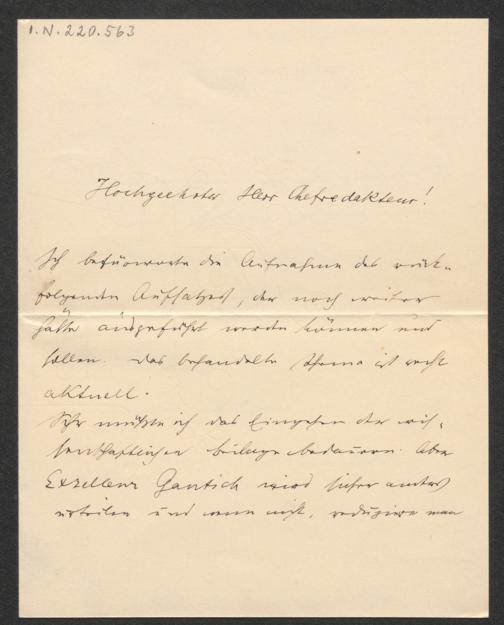 I.N.220.563
Hochgeehrter Herr Chefredakteur!
Ich befürworte die Aufnahme des rück-
folgenden Aufsatzes, der noch weiter
hätte ausgeführt werden können und
sollen. Das behandelte Thema ist recht
aktuell.
Sehr müßte ich das Eingehen der wis-
senschaftlichen Beilage bedauern. Aber
Exzellenz Gautsch wird sicher anders
urteilen und wenn nicht, reduziere man